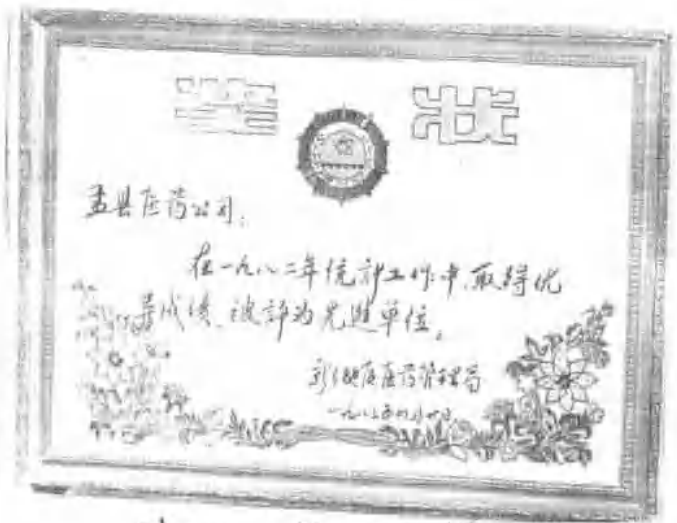 奖状
孟县医药公司:
在一九八二年统计工作中,取得优
异成绩,被评为先进单位。
新乡地区医药管理局
一九八三年